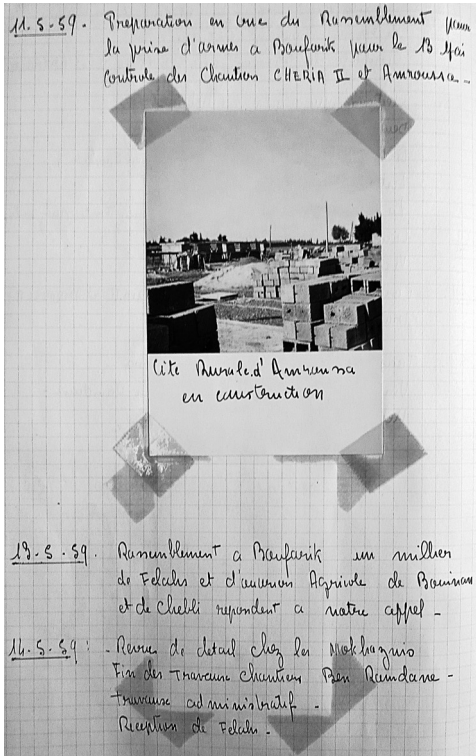 11.5.59. Preparation en vue du Rassemblement pour
la prise d'armes a Boufarik pour le 13 Mai
Controle des Chantiers CHERIA II et Amroussa -
Cité Rurale d'Amroussa
en construction
13.5.59. Rassemblement a Boufarik un millier
de Felahs et d'ouvriers Agricole de Bouinan
et de Chebli repondent a notre appel -
14.5.59: - Revue de detail chez les Mokhaznis
Fin des Travaux Chantiers Ben Ramdane -
Travaux administratif -
Reception de Felahs -